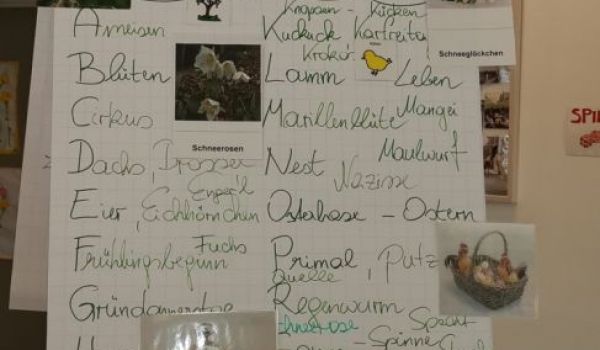 Knospen - Kücken
Ameisen
Kuckuck Karfreitag
Krokus
Schneeglöckchen
Blüten
Lamm
Leben
Cirkus
Marillenblüte
Mangei
Schneerosen
Maulwurf
Dachs, Drossel
Nest
Nazisse
Enger'l
Eier, Eichhörnchen
Osterhase - Ostern
Fuchs
Frühlingsbeginn
Primal, Putz
Quelle
Regenwurm
Specht
Spinne